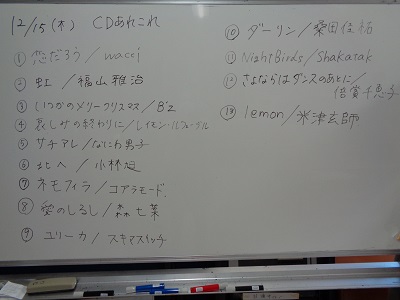 12/15(木) CDあれこれ
① 恋だろう/wacci
② 虹/福山雅治
③ いつかのメリークリスマス/B'z
④ 哀しみの終わりに/レイモン・ルフェーブル
⑤ サチアレ/なにわ男子
⑥ 北へ/小林旭
⑦ ネモフィラ/コアラモード.
⑧ 愛のしるし/森七菜
⑨ ユリーカ/スキマスイッチ
⑩ ダーリン/桑田佳祐
⑪ NightBirds/Shakatak
⑫ さよならはダンスのあとに/
倍賞千恵子
⑬ lemon/米津玄師